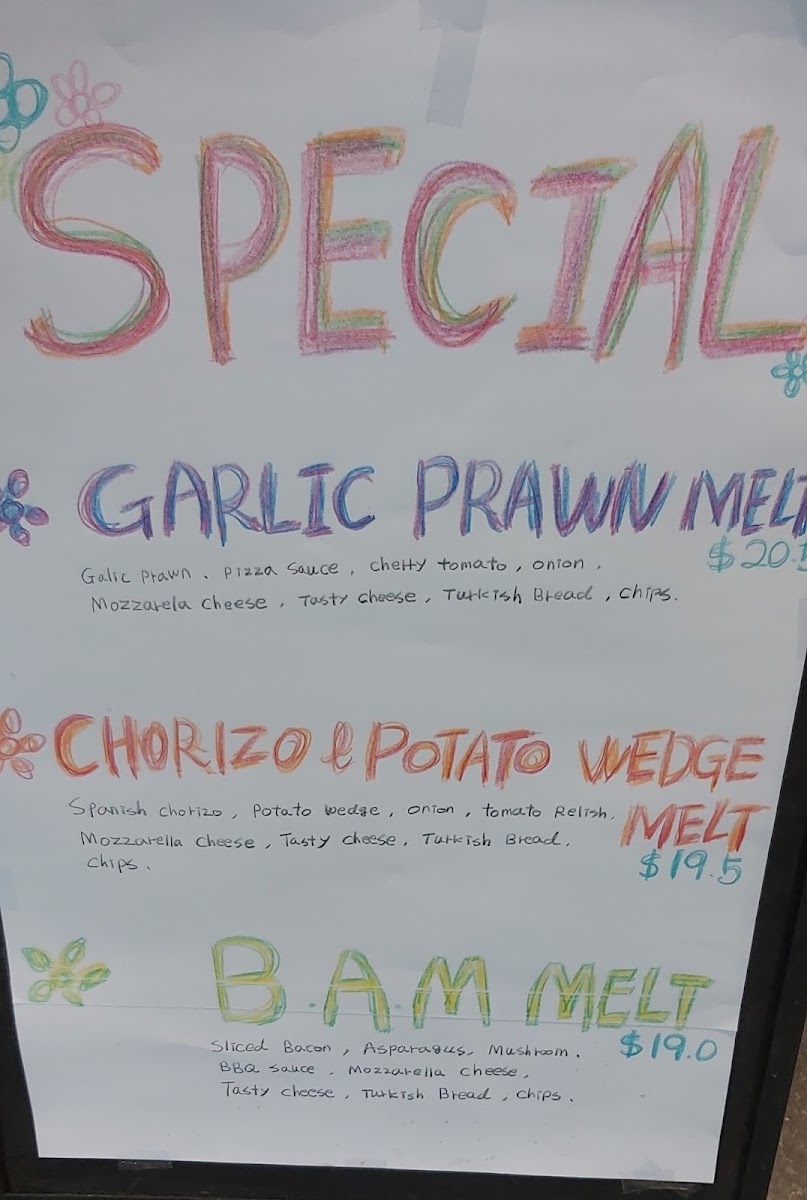 SPECIAL
GARLIC PRAWN MELT
$20.5
Galic Prawn, Pizza sauce, cherry tomato, onion,
Mozzarela cheese, Tasty cheese, Turkish Bread, chips.
CHORIZO & POTATO WEDGE
MELT
$19.5
Spanish chorizo, Potato wedge, onion, tomato Relish,
Mozzarella cheese, Tasty cheese, Turkish Bread,
chips.
B.A.M MELT
$19.0
Sliced Bacon, Asparagus, Mushroom.
BBQ sauce, Mozzarella cheese,
Tasty cheese, Turkish Bread, chips.